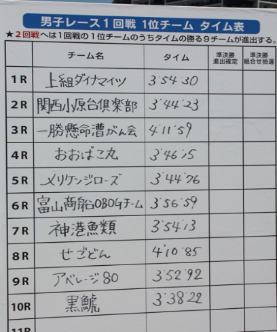 男子レース1回戦 1位チーム タイム表
★2回戦へは1回戦の1位チームのうちタイムの勝る9チームが進出する。
チーム名 タイム 準決勝進出確定 準決勝組合せ抽選
1R 上組ダイナマイツ 3'54"30
2R 関西小原台倶楽部 3'44"23
3R 一勝懸命漕がん会 4'11"59
4R おおばこ丸 3'46"15
5R メリケンジローズ 3'44"76
6R 富山商船OB&Gチーム 3'56"59
7R 神港魚類 3'54"13
8R せごどん 4'10"85
9R アベレージ80 3'52"92
10R 黒鯱 3'38"22
11R